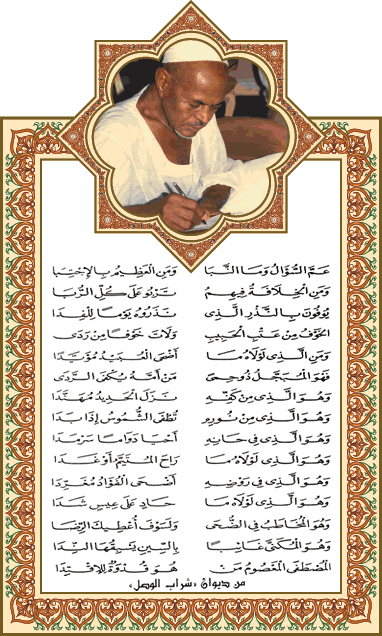 عَمَّ السُّؤَالُ وَمَا النَّبَا وَمَنِ العَظِيمُ بِالإِجْتِبَا
وَمَنِ الخِلَافَةُ فِيهِمُ تَرْنُو عَلَى كُلِّ الرُّبَا
يُوفُونَ بِالنَّذْرِ الَّذِي نَذَرُوهُ يَوْمًا لِلْفِدَا
الخَوْفُ مِنْ عَتْبِ الحَبِيبِ وَلَاتَ خَوْفًا مِنْ رَدَى
وَمَنِ الَّذِي لَوْلَاهُ مَا أَضْحَى العُبَيْدُ مُؤَيَّدَا
فَهُوَ المُبَجَّلُ ذُو حِمَى مَنْ أَمَّهُ يُكْفَى الرَّدَى
وَهُوَ الَّذِي مِنْ كَفِّهِ نَزَلَ الحَدِيدُ مُهَنَّدَا
وَهُوَ الَّذِي مِنْ نُورِهِ تُطْفَى الشُّمُوسُ إِذَا بَدَا
وَهُوَ الَّذِي فِي حَانِهِ أَحْيَا دَوَامًا سَرْمَدَا
وَهُوَ الَّذِي لَوْلَاهُ مَا رَاحَ المُتَيَّمُ أَوْ غَدَا
وَهُوَ الَّذِي فِي رَوْضِهِ أَضْحَى الفُؤَادُ مُغَرِّدَا
وَهُوَ الَّذِي لَوْلَاهُ مَا حَادٍ عَلَى عِيسٍ شَدَا
وَهُوَ المُخَاطَبُ فِي الضُّحَى وَلَسَوْفَ أُعْطِيكَ الرِّضَا
وَهُوَ المُكَنَّى غَائِبًا بِالسِّينِ يَسْبِقُهَا النِّدَا
المُصْطَفَى المَعْصُومُ مَنْ هُوَ قُدْوَةٌ لِلإِقْتِدَا
من ديوان «شراب الوصل»